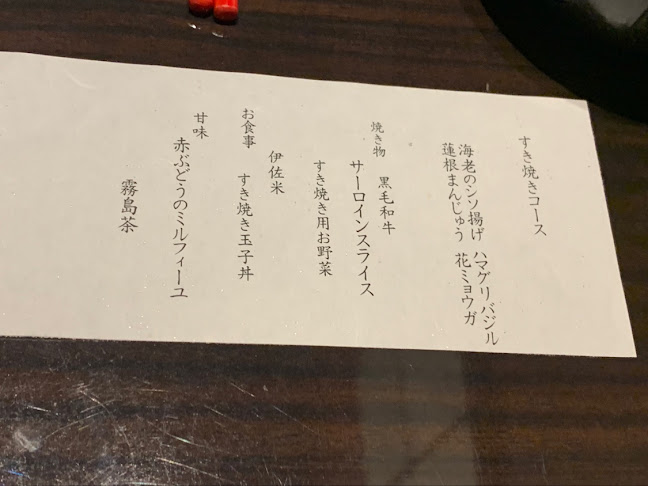 すき焼きコース
海老のシソ揚げ ハマグリバジル
蓮根まんじゅう 花ミョウガ
焼き物 黒毛和牛
サーロインスライス
すき焼き用お野菜
伊佐米
お食事 すき焼き玉子丼
甘味 赤ぶどうのミルフィーユ
霧島茶